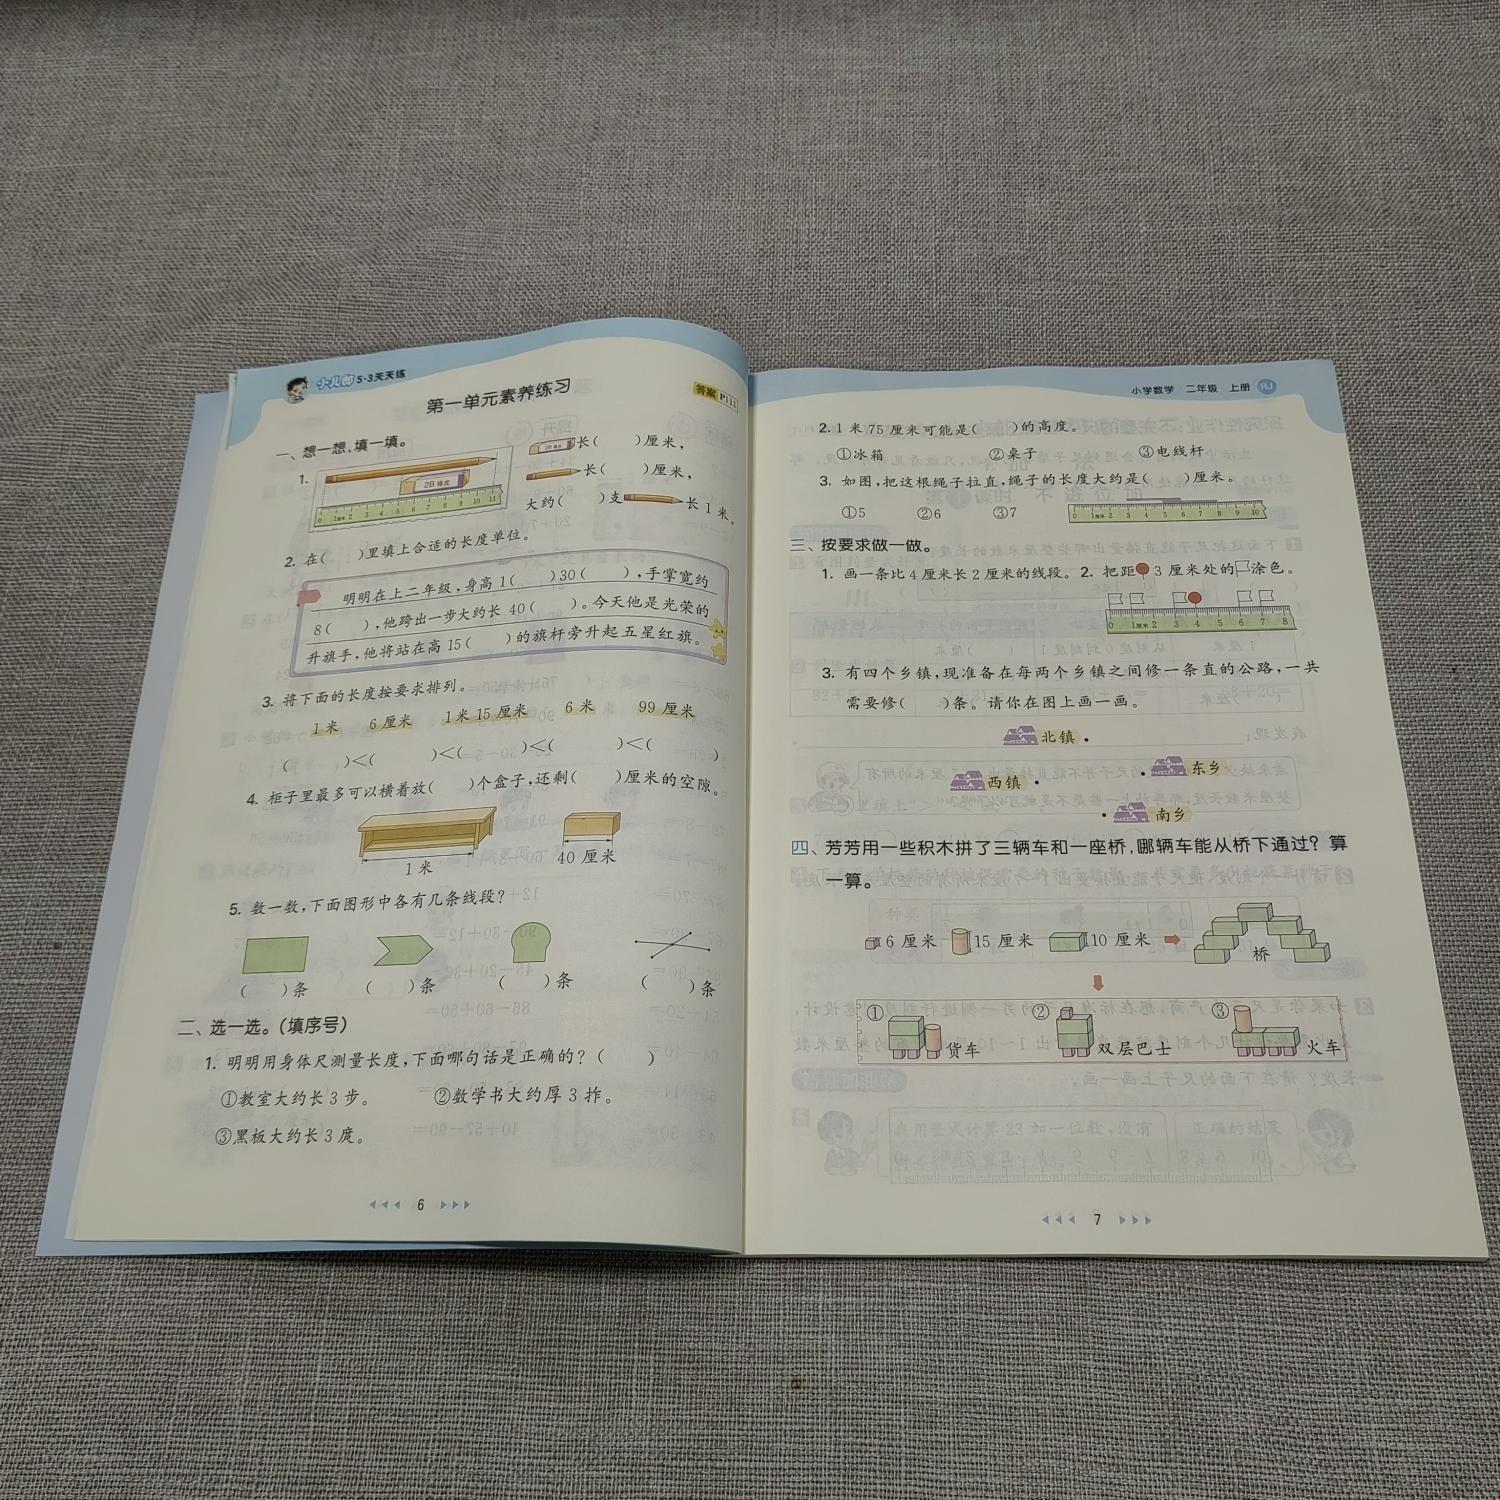 小儿郎 5·3天天练
第一单元素养练习
答案 P111
一、想一想,填一填。
1.
2B 橡皮
0 1厘米 2 3 4 5 6 7 8 9 10 11
长(  )厘米,
长(  )厘米,
大约(  )支 长1米。
2. 在(  )里填上合适的长度单位。
明明在上二年级,身高1(  )30(  ),手掌宽约
8(  ),他跨出一步大约长 40(  )。今天他是光荣的
升旗手,他将站在高15(  )的旗杆旁升起五星红旗。
3. 将下面的长度按要求排列。
1米 6厘米 1米15厘米 6米 99厘米
(  )<(  )<(  )<(  )<(  )
4. 柜子里最多可以横着放(  )个盒子,还剩(  )厘米的空隙。
1米 40厘米
5. 数一数,下面图形中各有几条线段?
(  )条 (  )条 (  )条 (  )条
二、选一选。(填序号)
1. 明明用身体尺测量长度,下面哪句话是正确的?(  )
①教室大约长3步。 ②数学书大约厚3拃。
③黑板大约长3度。
6
小学数学 二年级 上册 RJ
2. 1米75厘米可能是(  )的高度。
①冰箱 ②桌子 ③电线杆
3. 如图,把这根绳子拉直,绳子的长度大约是(  )厘米。
①5 ②6 ③7
0 1厘米 2 3 4 5 6 7 8 9 10
三、按要求做一做。
1. 画一条比4厘米长2厘米的线段。 2. 把距 3厘米处的 涂色。
0 1厘米 2 3 4 5 6 7 8
3. 有四个乡镇,现准备在每两个乡镇之间修一条直的公路,一共
需要修(  )条。请你在图上画一画。
北镇
东乡
西镇
南乡
四、芳芳用一些积木拼了三辆车和一座桥,哪辆车能从桥下通过?算
一算。
6厘米 15厘米 10厘米 桥
① 货车 ② 双层巴士 ③ 火车
7